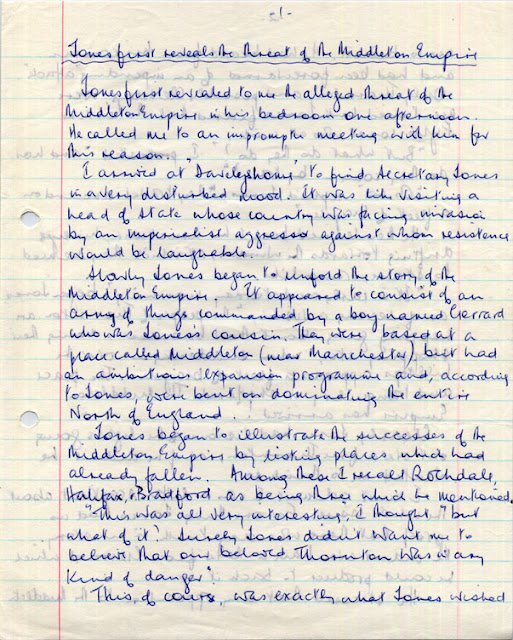 -1-
Jones first reveals the threat of the Middleton Empire
Jones first revealed to me the alleged threat of the
Middleton Empire in his bedroom one afternoon.
He called me to an impromptu meeting with him for
this reason.
I arrived at to find Secretary Jones
in a very disturbed mood. It was like visiting a
head of state whose country was facing invasion
by an imperialist aggressor against whom resistance
would be laughable.
Slowly Jones began to unfold the story of the
Middleton Empire. It appeared to consist of an
army of thugs commanded by a boy named Gerrard
who was Jones's cousin. They were based at a
place called Middleton (near Manchester) but had
an ambitious expansion programme and, according
to Jones, were bent on dominating the entire
North of England.
Jones began to illustrate the successes of the
Middleton Empire by listing places which had
already fallen. Among these I recall Rochdale,
Halifax & Bradford as being three which he mentioned.
"This was all very interesting, I thought "but
what of it? Surely Jones didn't want me to
believe that our beloved Thornton was in any
kind of danger".
This, of course, was exactly what Jones wished